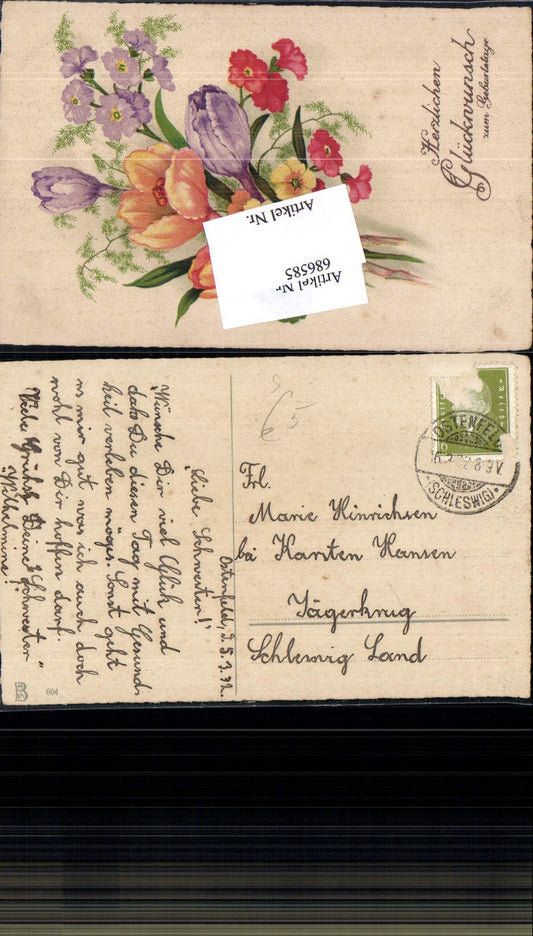 Herzlichen
Glückwunsch
zum Geburtstage
Artikel Nr.
Artikel Nr.
686585
Ostenfeld, d. 5.3.32.
Liebe Schwester!
Wünsche Dir viel Glück und
daß Du diesen Tag mit Gesund-
heit verleben möges. Sonst geht
es mir gut was ich auch doch
wohl von Dir hoffen darf.
Viele Grüße Deine Schwester
Wilhelmine!
604
€ 5
OSTENFELD
8-9V
(SCHLESWIG)
Frl.
Marie Hinrichsen
bei Karsten Hansen
Jägerkrug
Schleswig Land